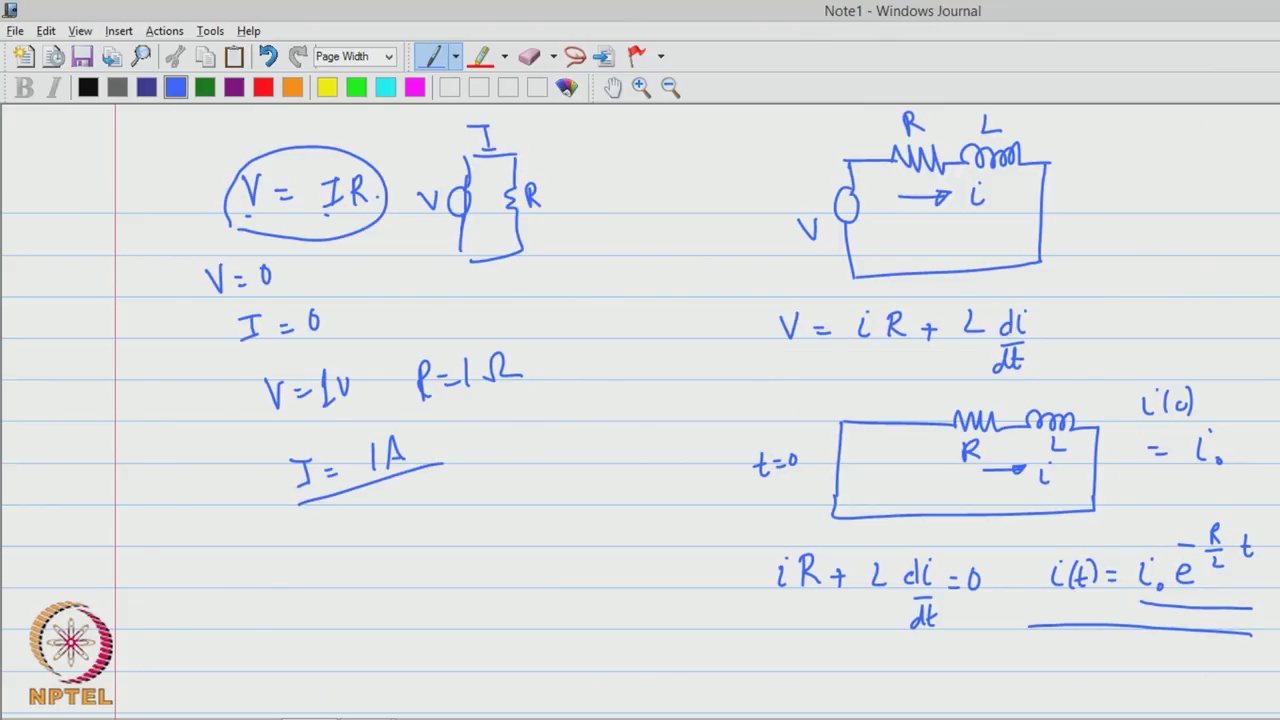 Note1 - Windows Journal
File Edit View Insert Actions Tools Help
Page Width
B I
V = IR.
I
V
R
V = 0
I = 0
V = 1V R = 1 Ω
I = 1A
R L
i
V
V = i R + L di/dt
t=0
R L
i
i(0)
= i₀
i R + L di/dt = 0 i(t) = i₀ e^(-R/L t)
NPTEL